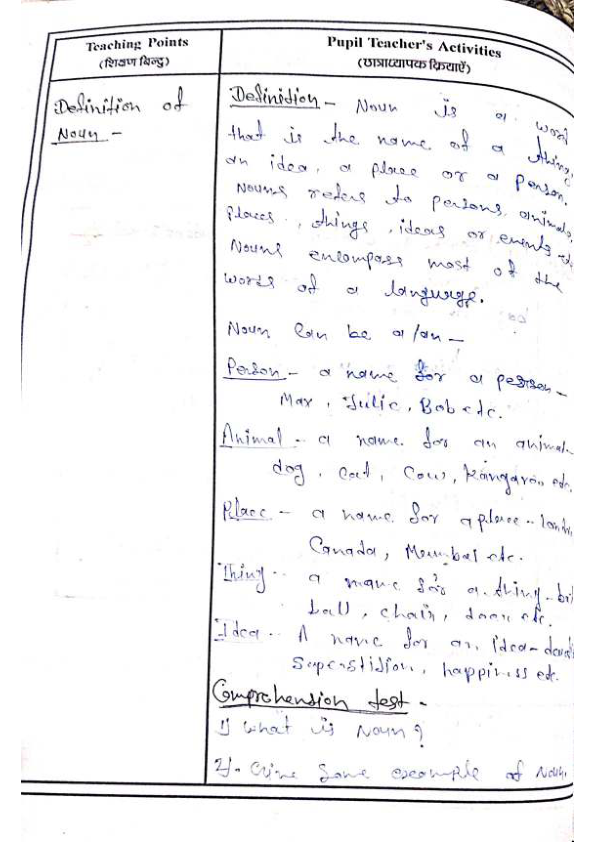 Teaching Points
(शिक्षण बिन्दु)
Pupil Teacher's Activities
(छात्राध्यापक क्रियाऐं)
Definition of
Noun -
Definition - Noun is a word
that is the name of a thing,
an idea, a place or a person.
Nouns refers to persons, animals,
places, things, ideas or events etc.
Nouns encompass most of the
words of a language.
Noun can be a/an -
Person - a name for a person -
Max, Julie, Bob etc.
Animal - a name for an animal -
dog, cat, cow, Kangaroo etc.
Place - a name for a place - London
Canada, Mumbai etc.
Thing - a name for a thing -
ball, chair, door etc.
Idea - A name for an idea -
Superstition, happiness etc.
Comprehension test -
1) What is Noun?
2) Give some example of Noun.